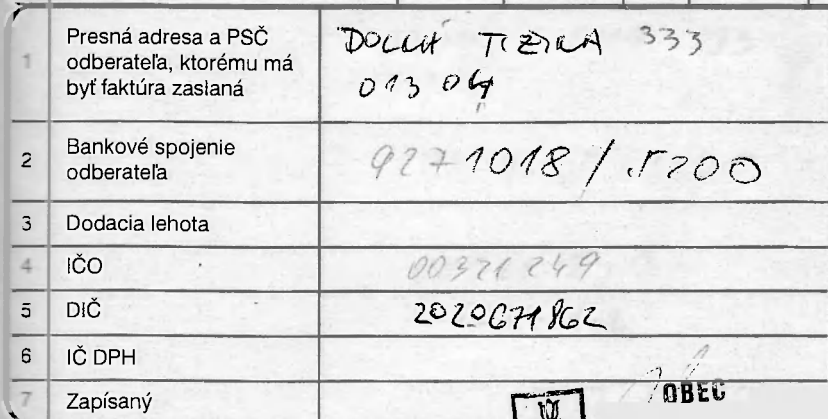 1 Presná adresa a PSČ odberateľa, ktorému má byť faktúra zaslaná DOLNÁ TIŽINA 333
013 04
2 Bankové spojenie odberateľa 9271018 / 5200
3 Dodacia lehota
4 IČO 00321249
5 DIČ 2020671862
6 IČ DPH
7 Zapísaný OBEC